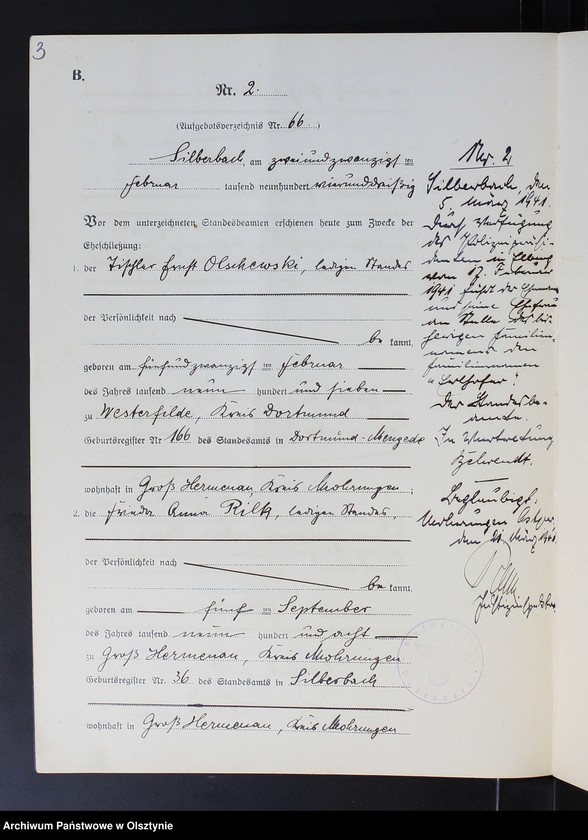 3
B.
Nr. 2.
(Aufgebotsverzeichnis Nr. 66)
Silberbach, am zweiundzwanzigsten
Februar tausend neunhundert vierunddreißig
Vor dem unterzeichneten Standesbeamten erschienen heute zum Zwecke der
Eheschließung:
1. der Tischler Ernst Olschewski, ledigen Standes
der Persönlichkeit nach
be kannt,
geboren am fünfundzwanzigsten Februar
des Jahres tausend neun hundert und sieben
zu Westerfilde, Kreis Dortmund
Geburtsregister Nr 166 des Standesamts in Dortmund-Mengede
wohnhaft in Groß Hermenau, Kreis Mohrungen;
2. die Frieda Anna Rilk, ledigen Standes,
der Persönlichkeit nach
be kannt,
geboren am fünften September
des Jahres tausend neun hundert und acht
zu Groß Hermenau, Kreis Mohrungen
Geburtsregister Nr. 36 des Standesamts in Silberbach
wohnhaft in Groß Hermenau, Kreis Mohrungen
Nr. 2
Silberbach, den
5. März 1941.
Durch Verfügung
des Polizeipräsi-
denten in Elbing
vom 17. Februar
1941 führt der Ehemann
und seine Ehefrau
an Stelle des bis-
herigen Familien-
namens den
Familiennamen
Der Standesbe-
amte.
In Vertretung
Beglaubigt.
Mohrungen Ostpr.
den 21 März 1941.
Archiwum Państwowe w Olsztynie